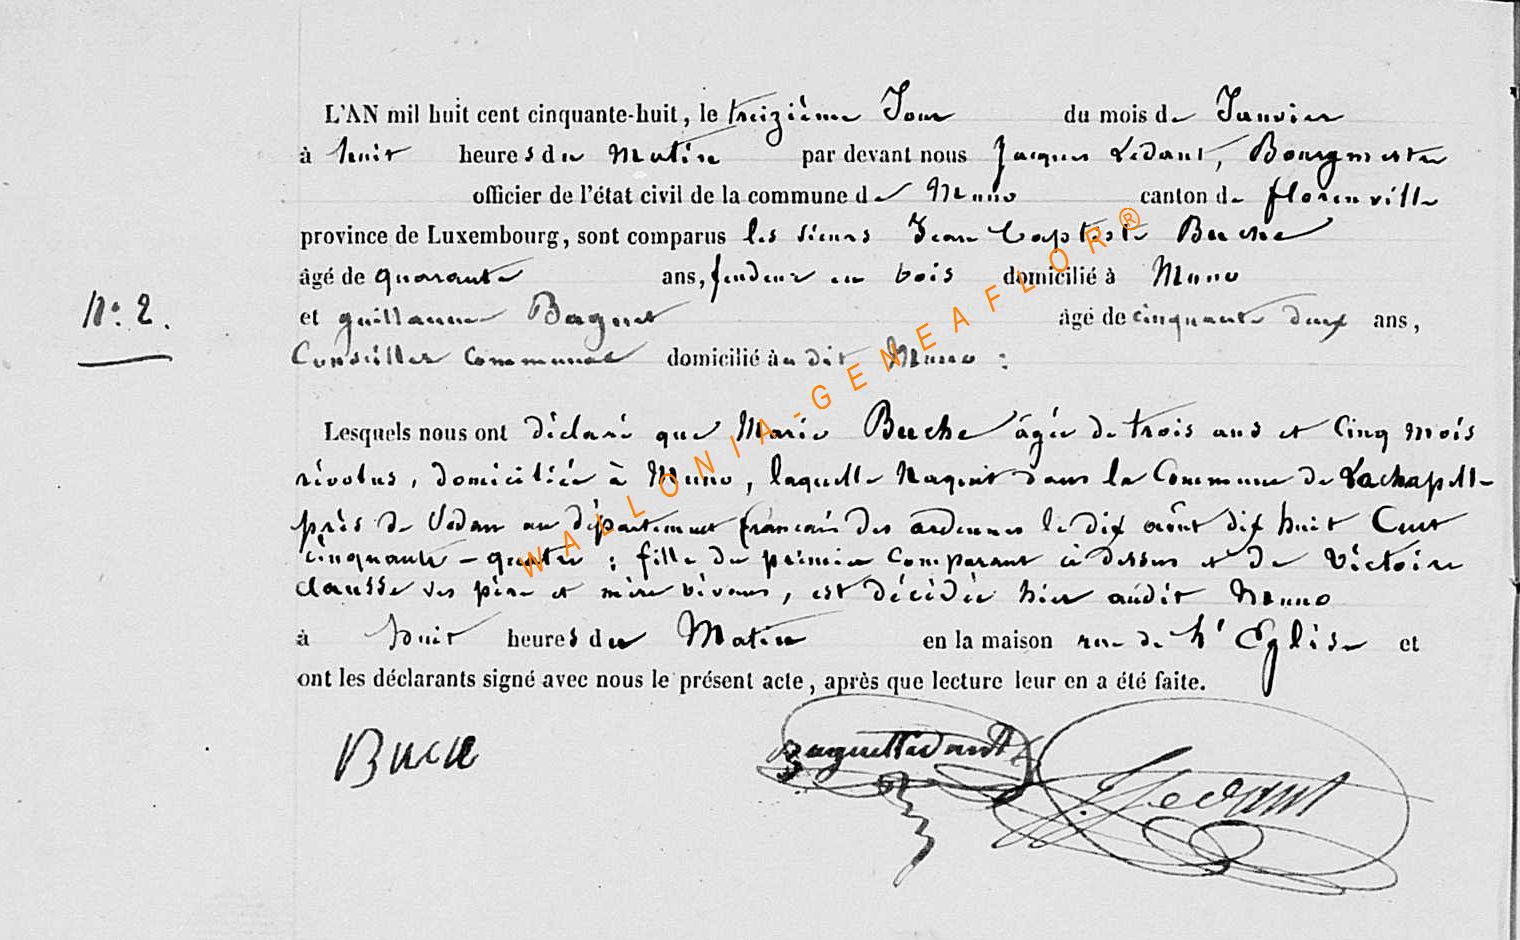 L'AN mil huit cent cinquante-huit, le treizième Jour du mois de Janvier
à huit heures du Matin par devant nous Jacques Ledant, Bourgmestre
officier de l'état civil de la commune de Muno canton de florenville
province de Luxembourg, sont comparus les sieurs Jean Baptiste Buche
âgé de quarante ans, fendeur en bois domicilié à Muno
N° 2.
et guillaume Baguet âgé de cinquante deux ans,
Conseiller Communal domicilié au dit Muno :
Lesquels nous ont déclaré que Marie Buche âgée de trois ans et Cinq mois
révolus, domiciliée à Muno, laquelle Naquit dans la Commune de Lachapelle
près de Sedan au département français des ardennes le dix août dix huit Cent
cinquante - quatre ; fille du premier Comparant ci dessus et de Victoire
clausse ses père et mère vivans, est décédée hier audit Muno
à huit heures du Matin en la maison rue de l'Eglise et
ont les déclarants signé avec nous le présent acte, après que lecture leur en a été faite.
Buche
J Ledant
WALLONIA-GENEAFLOR®